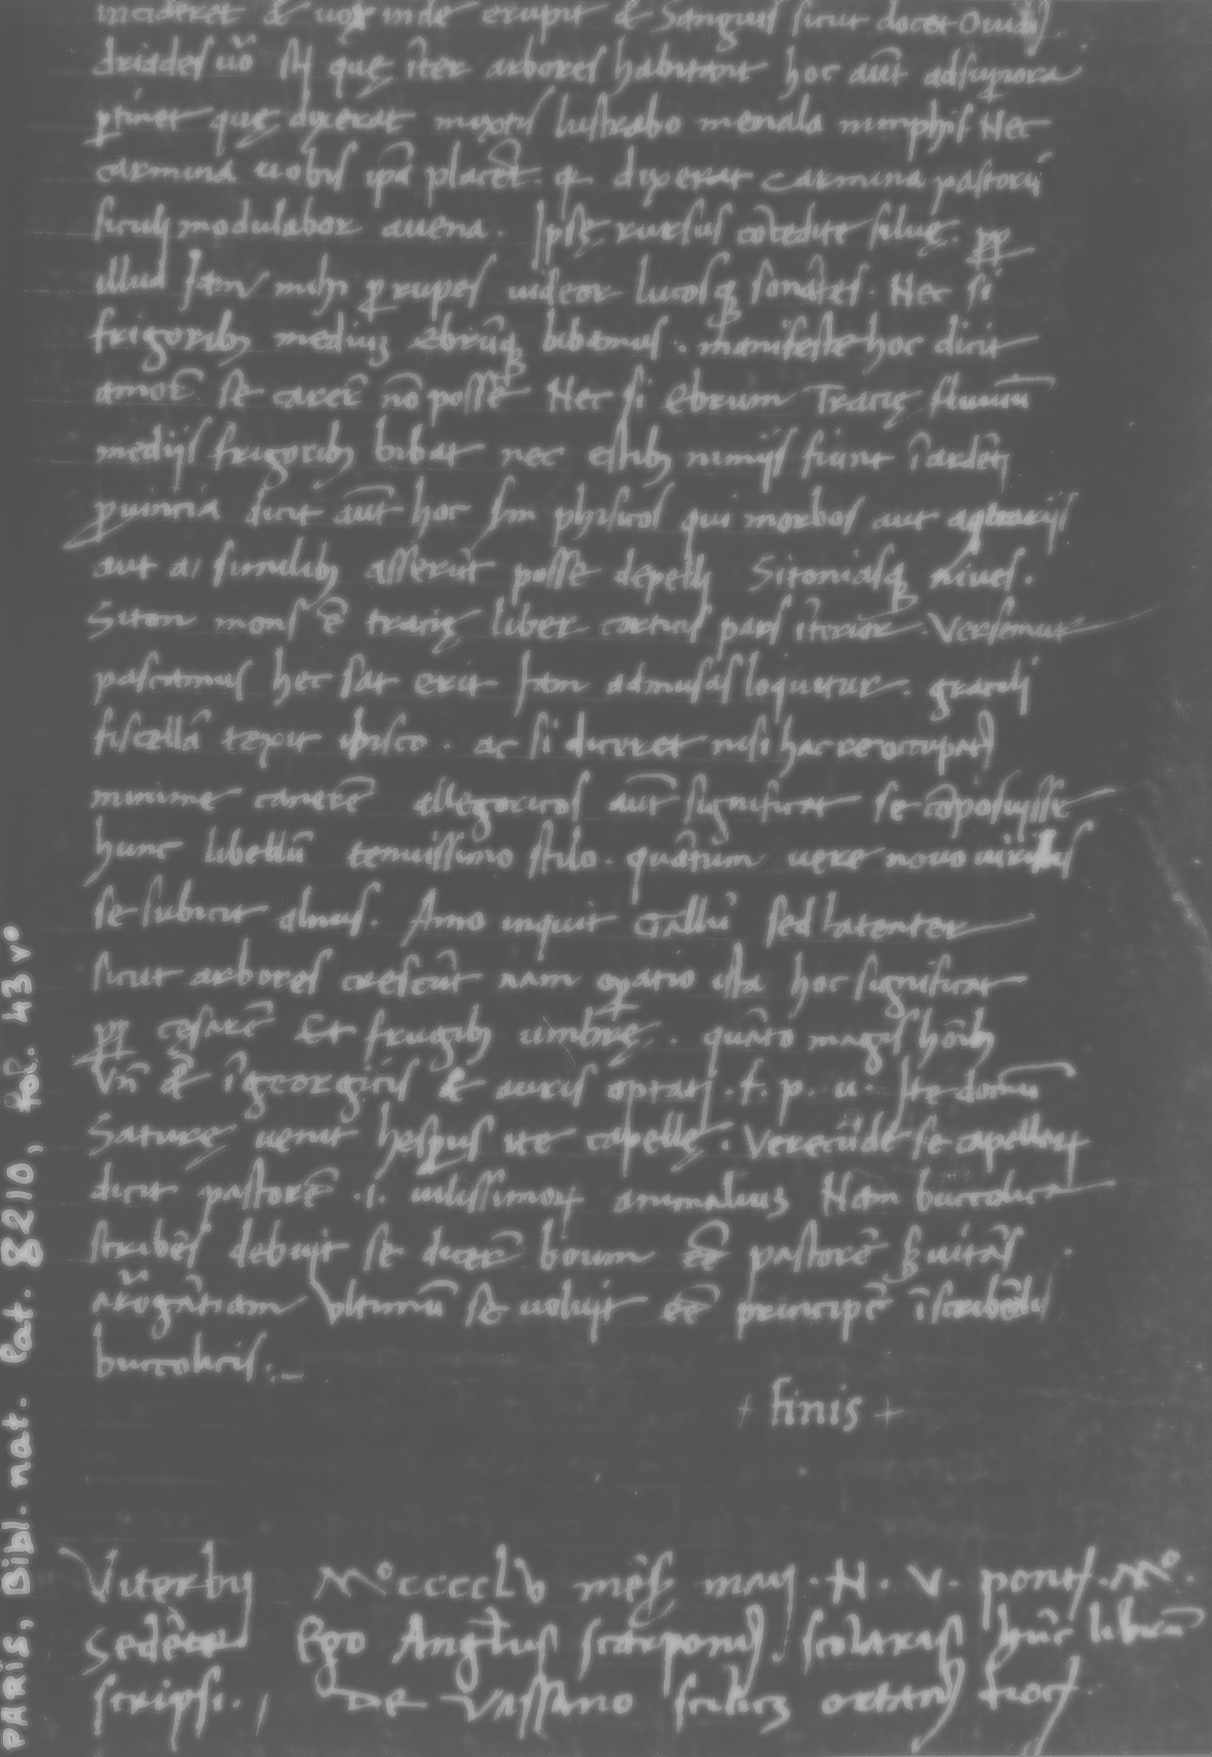 incideret & uox inde erupit & Sanguis sicut docet Ouidi9
driades uo st que īter arbores habitant hoc aūt ad supiora
ptinet que dixerat mixtis lustrabo menala nimphis Nec
carmina nobis ipa placēt. q dixerat carmina pastoris
siculi modulabor auena. Ipse rursus cōcedite silue. pp
illud Jam mihi p rupes uideor lucosq sonātes. Nec si
frigorib3 mediis ebrūq bibamus. manifeste hoc dicit
amorē se carere nō posse Nec si ebrum Tracie fluuiū
mediis frigorib3 bibat nec estib3 nimijs fiunt ī ardēti
puincia dicit aūt hoc phisicos qui morbos aut
aut a similib3 asserūt posse depelli Sitoniasq niues.
Siton mons ē tracie liber corticis pars īterior. Versemus
pascamus hec sat erit Jam ad musas loquitur. gracili
fiscellā texit ibisco. ac si diceret nisi hac re occupat9
minime canerē allegoricos aūt significat se cōposuisse
hunc libellū tenuissimo stilo. quātum uere nouo uiridis
se subicit alnus. Amo inquit Gallū sed latenter
sicut arbores crescūt nam opatio ista hoc significat
pp cesarē Et frugib3 umbre. quāto magis hoīb3
Vn & ī georgicis & auris optati. f. p. u. Ite domū
Sature uenit hespus ite capelle. Verecūde se capellarū
dicit pastorē .i. uilissimorū animalium Nam buccolica
scribēs debuit se dicere boum eē pastorē s; uitās
arrogātiam Vltimū se uoluit eē principē ī scribēdis
buccolicis:_
+ finis +
Viterbij Mº ccccclv mēs maij. N. V. pontf. Mº.
Sedēte Ego Angelus scolaras hūc librū
scripsi. DE VASSANO scilic3
PARIS, Bibl. nat. lat. 8210, fol. 43 vº